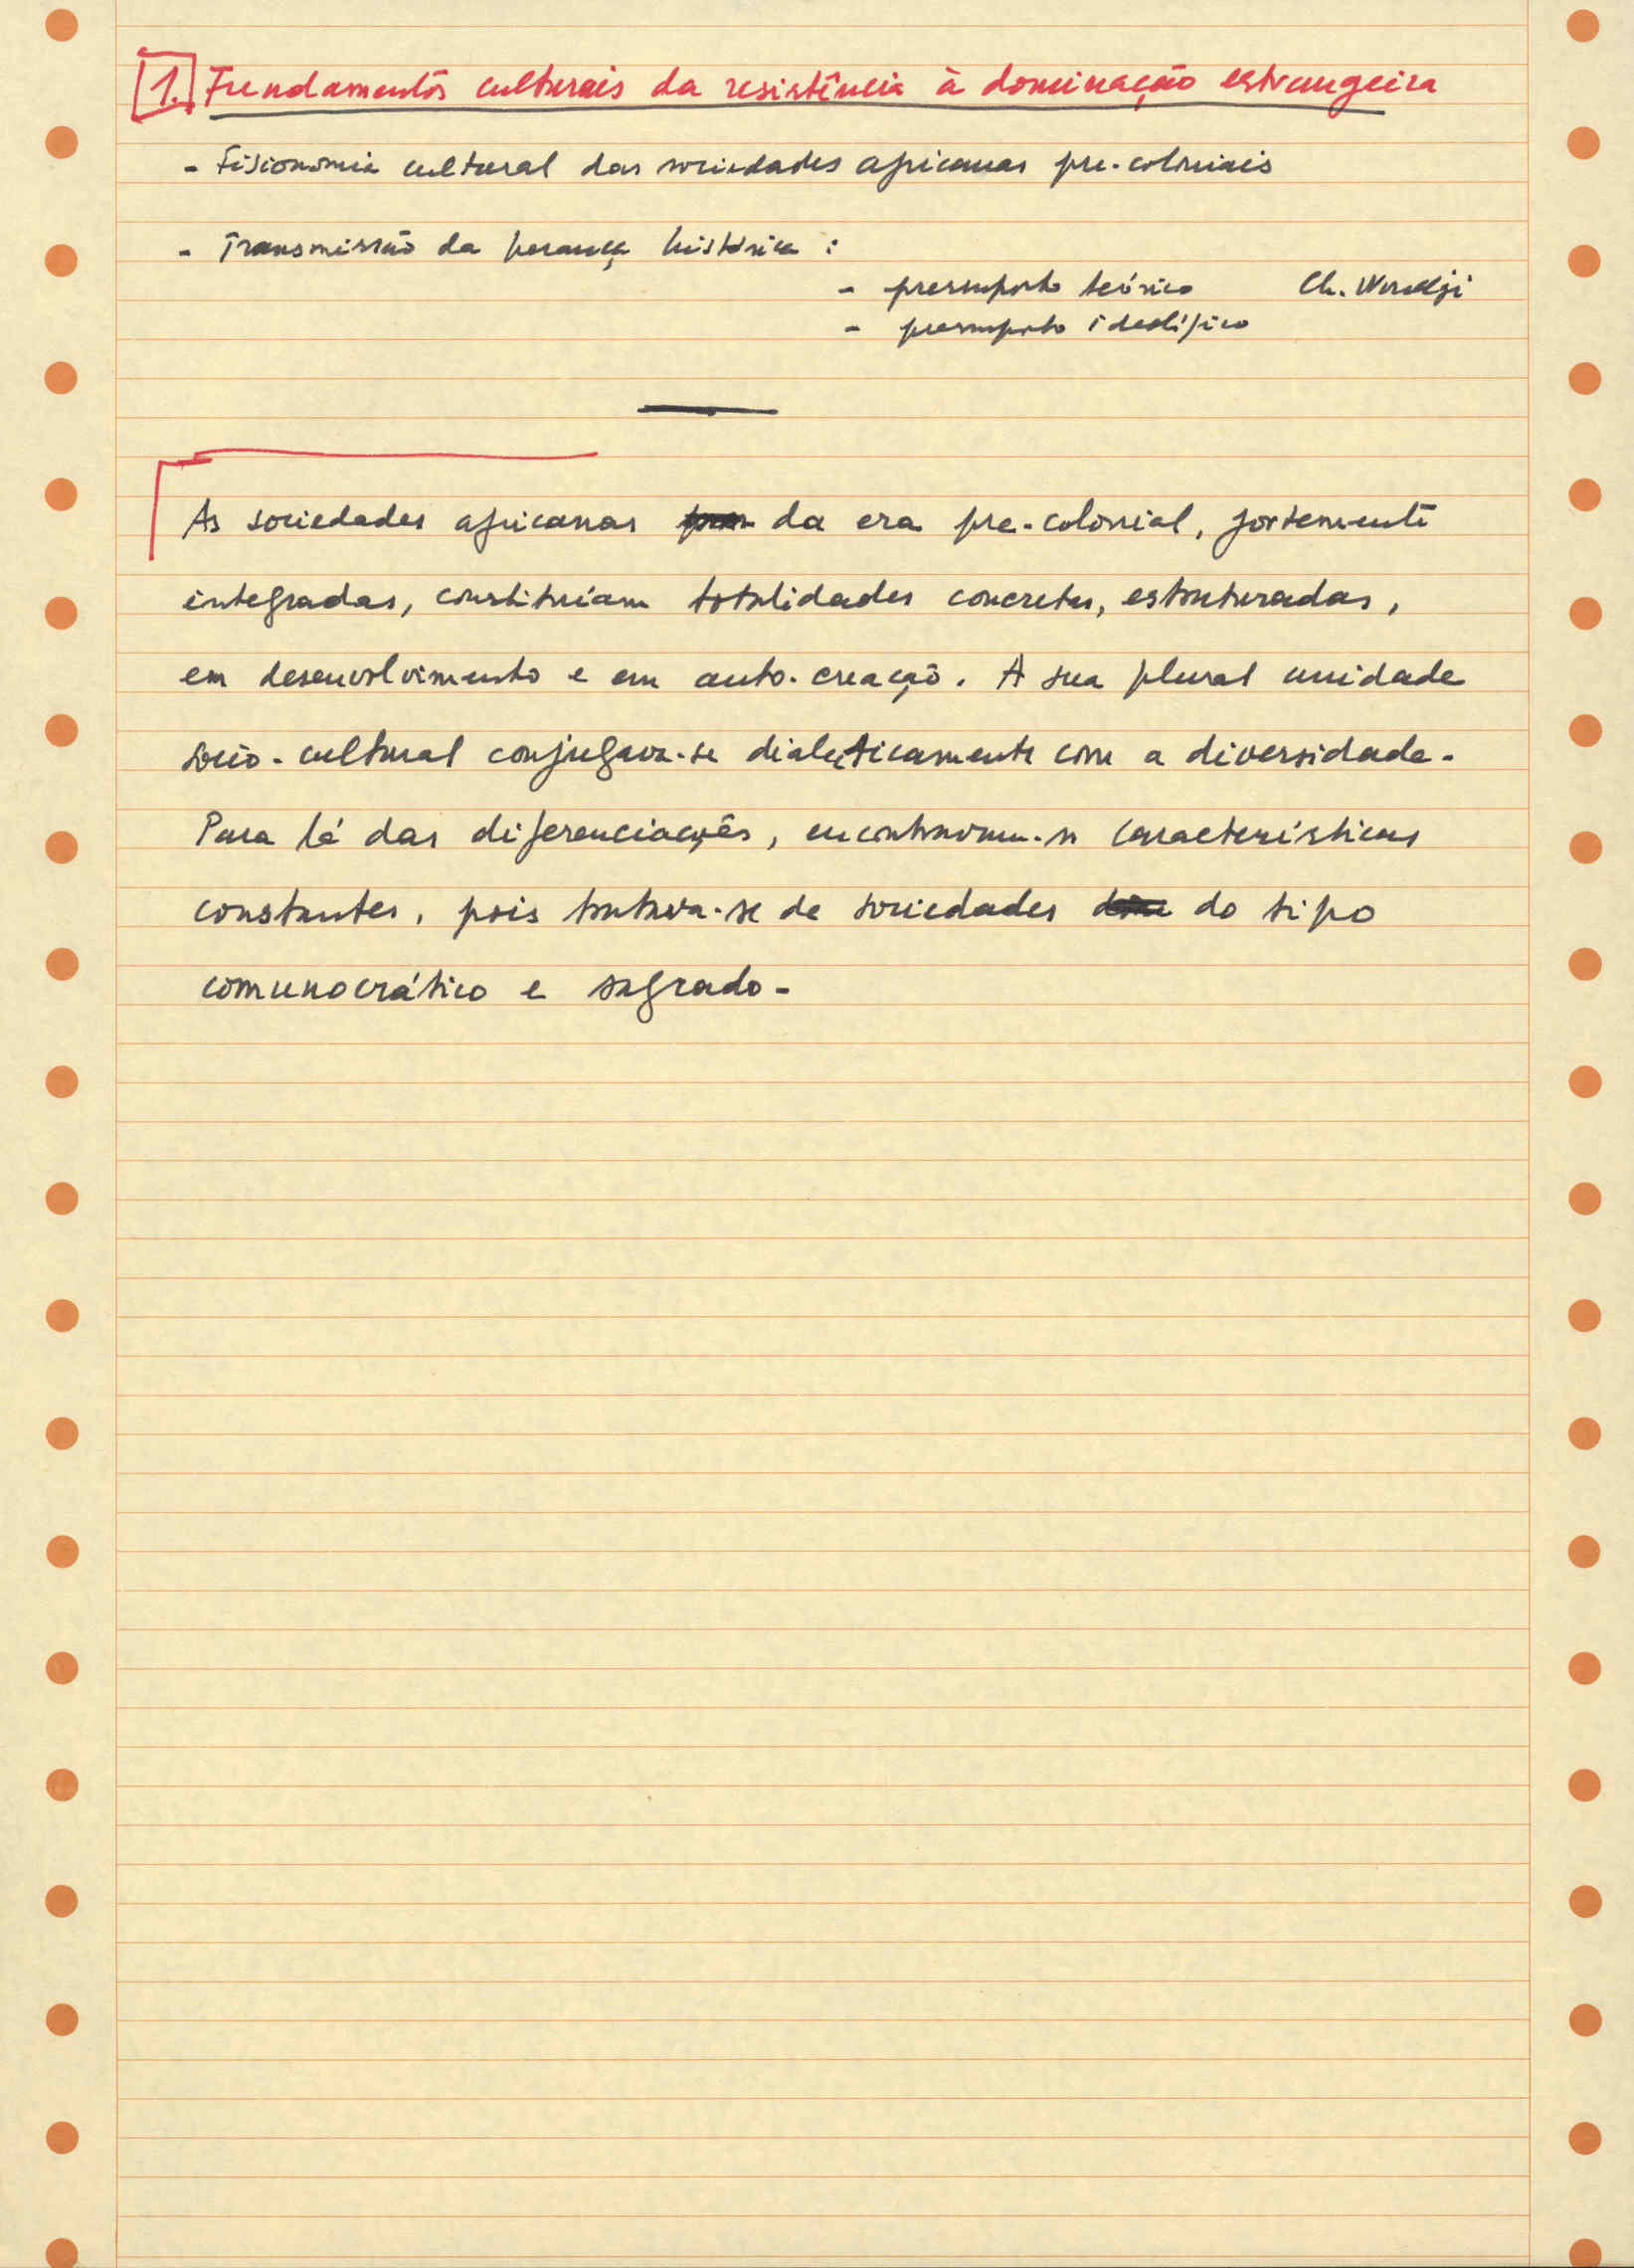 1. Fundamentos culturais da resistência à dominação estrangeira
- Fisionomia cultural das sociedades africanas pre-coloniais
- Transmissão da herança histórica :
- pressuposto teórico Ch. Wondji
- pressuposto ideológico
As sociedades africanas da era pre-colonial, fortemente
integradas, constituíam totalidades concretas, estruturadas,
em desenvolvimento e em auto-creação. A sua plural unidade
socio-cultural conjugava-se dialecticamente com a diversidade.
Para lá das diferenciações, encontravam-se características
constantes, pois tratava-se de sociedades do tipo
comunocrático e sagrado.